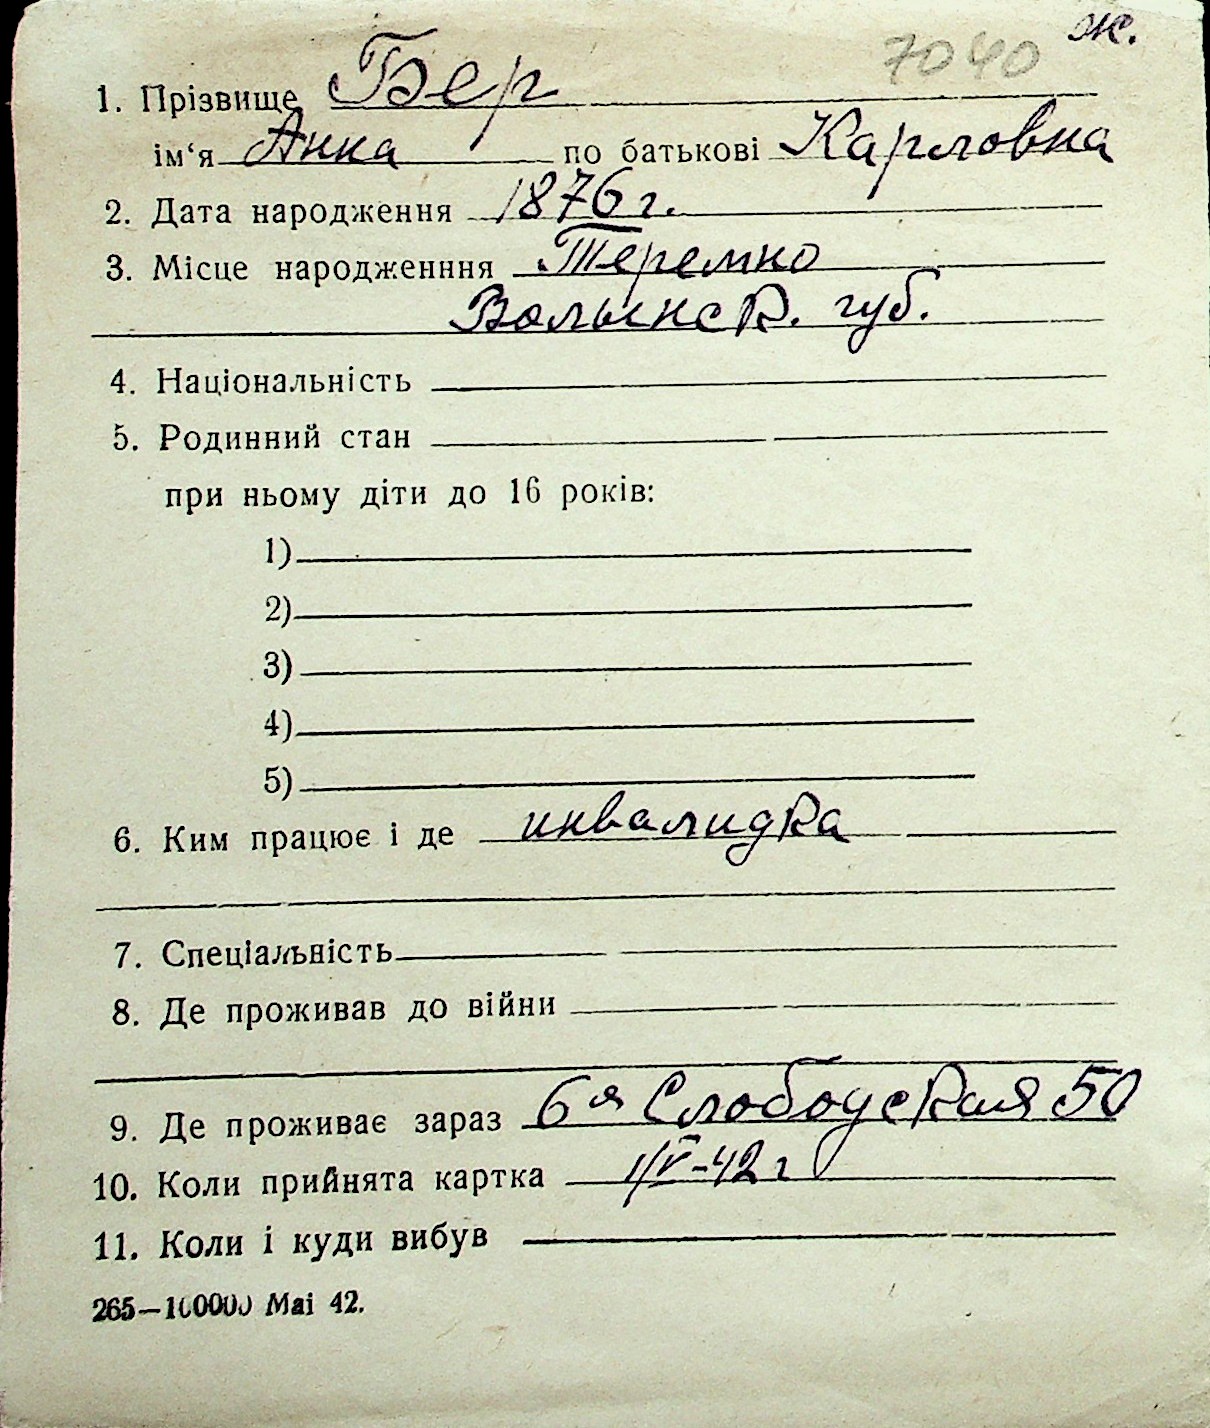 7040 ж.
1. Прізвище Бер
ім‘я Анна по батькові Карловна
2. Дата народження 1876 г.
3. Місце народженння Теремно
Волынск. губ.
4. Національність
5. Родинний стан
при ньому діти до 16 років:
1)
2)
3)
4)
5)
6. Ким працює і де инвалидка
7. Спеціальність
8. Де проживав до війни
9. Де проживає зараз 6я Слободская 50
10. Коли прийнята картка 1/V-42 г
11. Коли і куди вибув
265—100000 Mai 42.